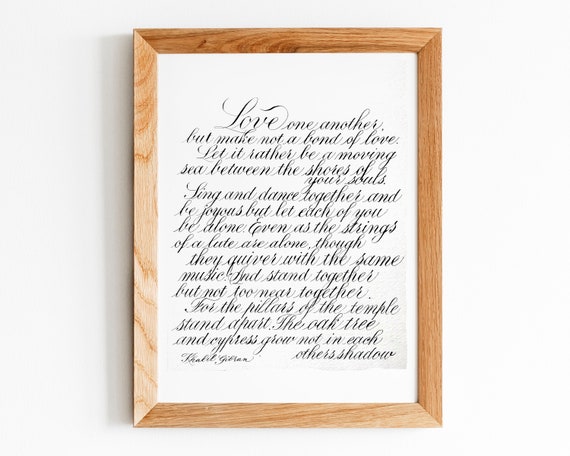 Love one another,
but make not a bond of love.
Let it rather be a moving
sea between the shores of
your souls.
Sing and dance together and
be joyous but let each of you
be alone. Even as the strings
of a lute are alone, though
they quiver with the same
music. And stand together
but not too near together.
For the pillars of the temple
stand apart. The oak tree
and cypress grow not in each
others shadow
Khalil Gibran